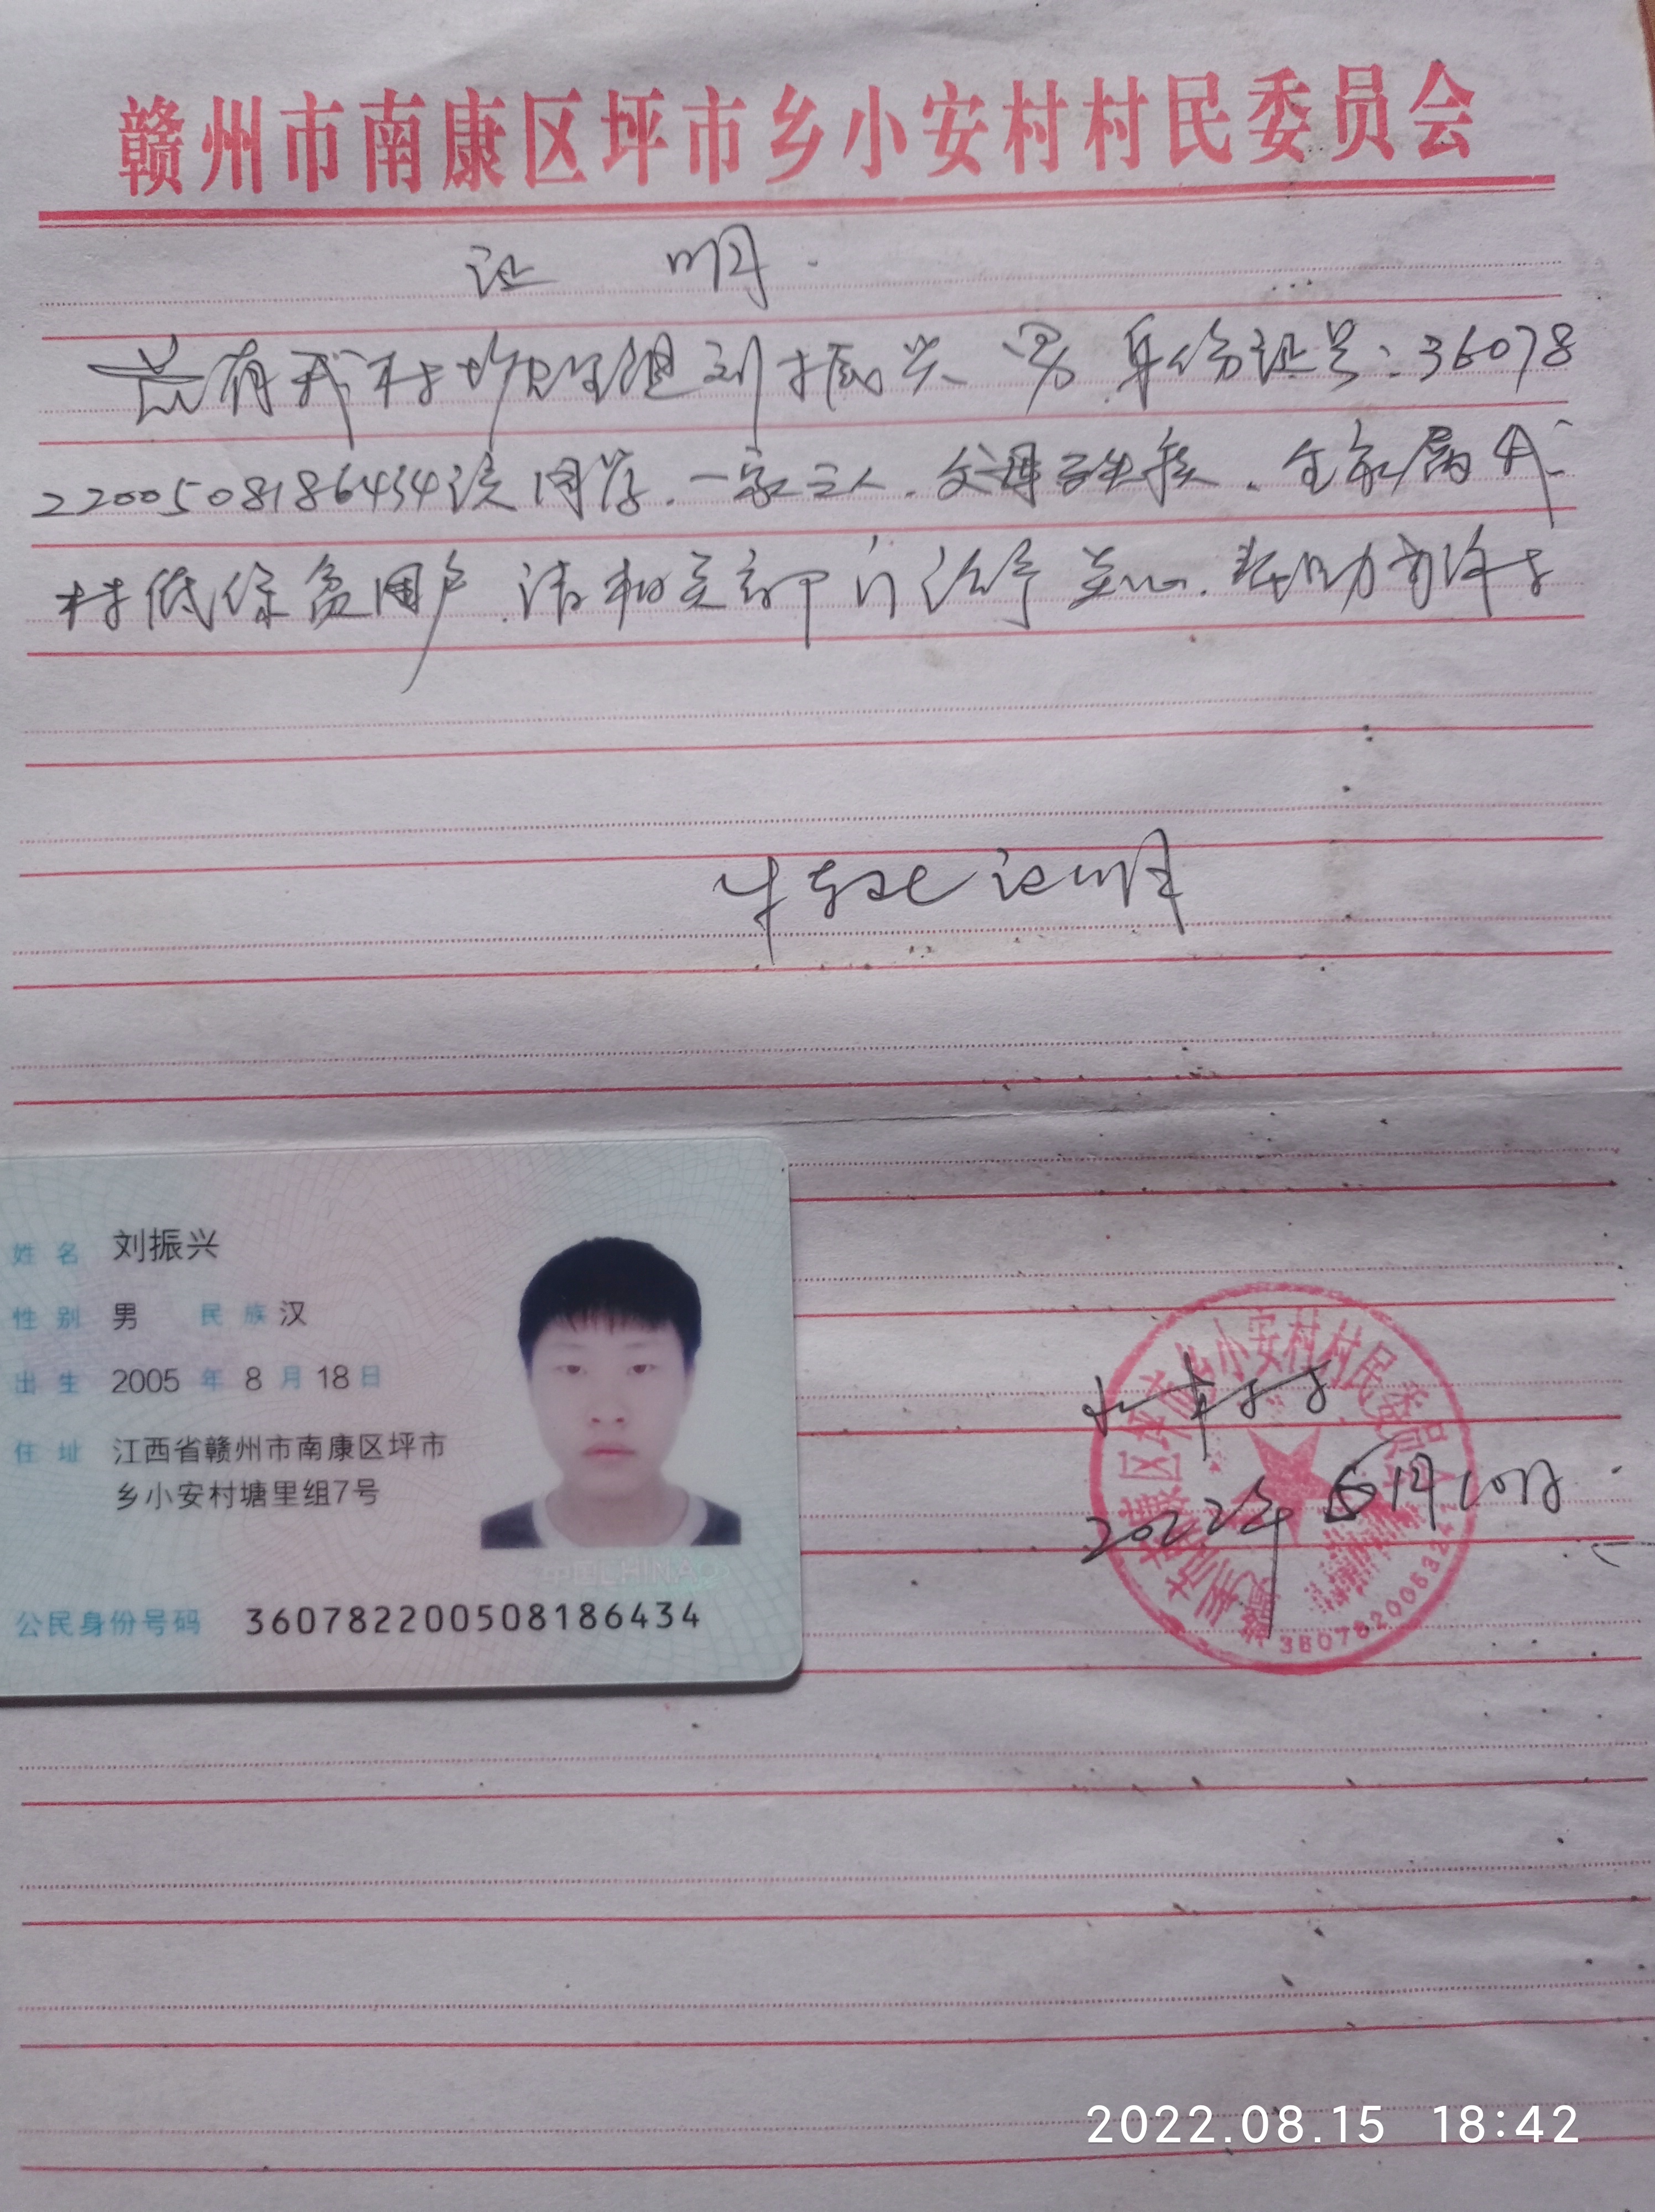 赣州市南康区坪市乡小安村村民委员会
证 明
兹有我村塘里组刘振兴 男 身份证号:36078
2200508186434该同学.一家三人.父母 残.全家属我
村低保贫困户.请相关部门给予关心.帮助 
特此证明
姓名 刘振兴
性别 男 民族 汉
出生 2005年8月18日
住址 江西省赣州市南康区坪市
乡小安村塘里组7号
公民身份号码 360782200508186434
中国CHINA
小安村
2022年 月10日
区坪市乡小安村村民委员
2022.08.15 18:42